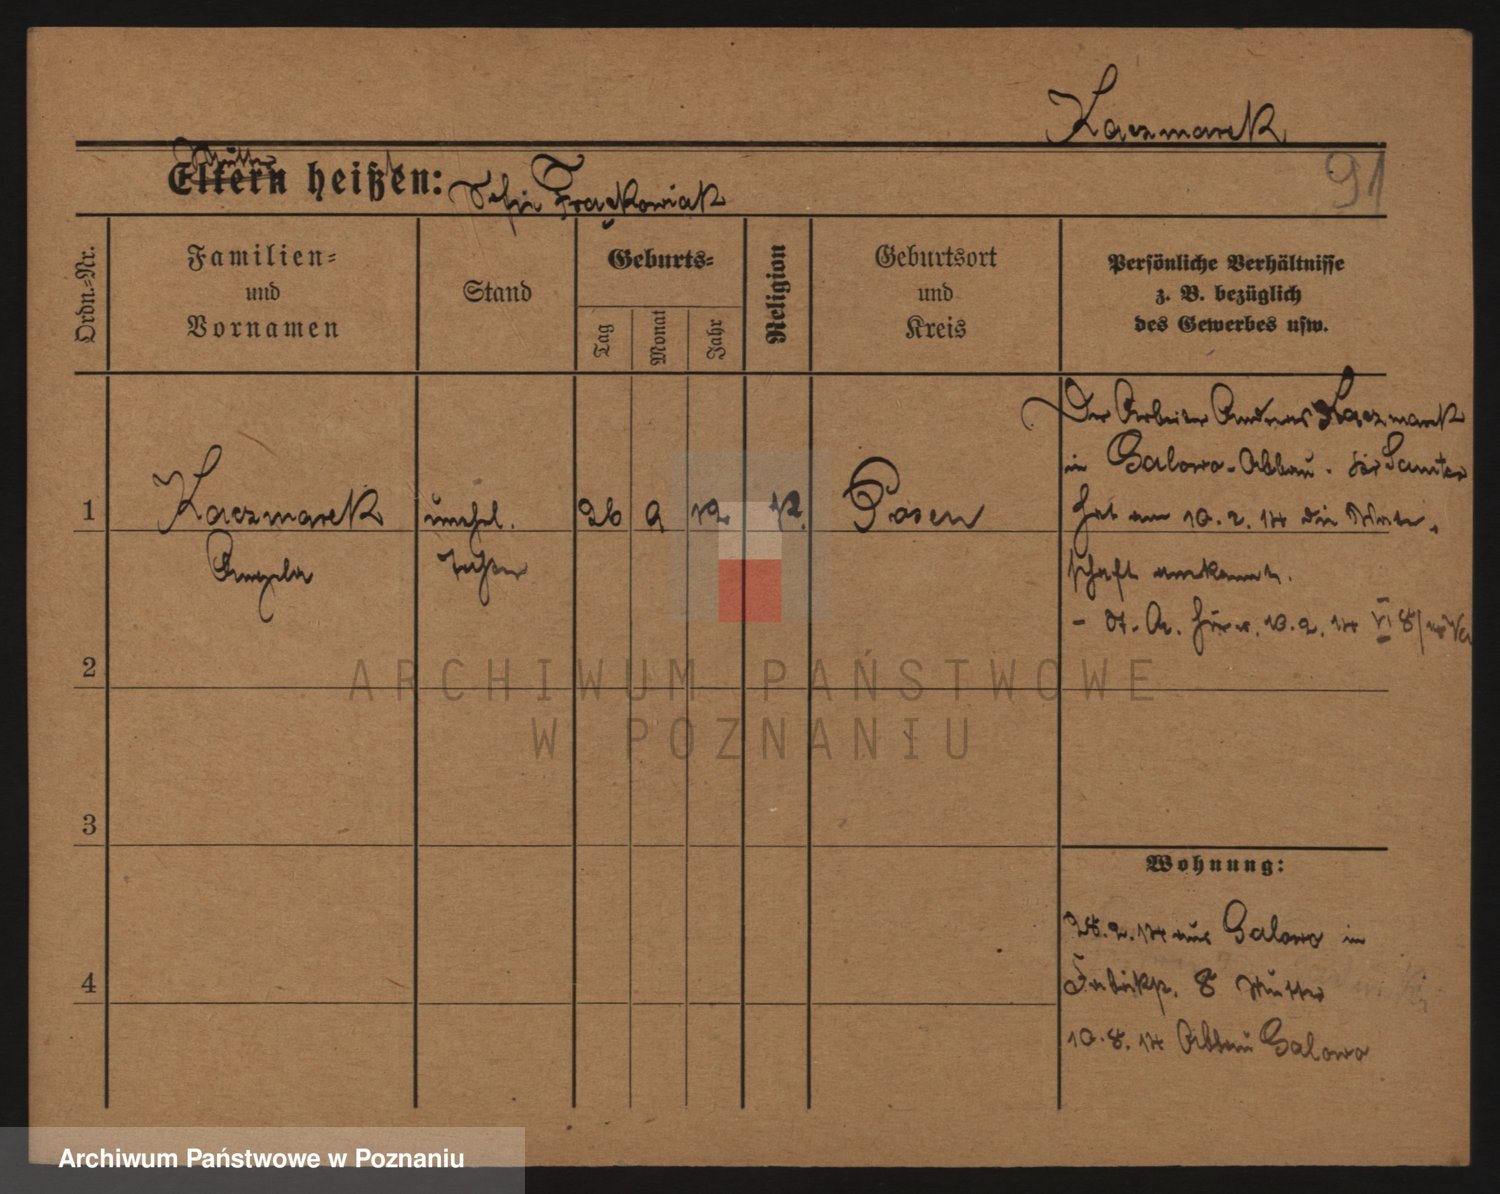 Kaczmarek
91
Mutter
Eltern heißen: Frąckowiak
Ordn.-Nr.
Familien-
und
Vornamen
Stand
Geburts-
Tag
Monat
Jahr
Religion
Geburtsort
und
Kreis
Persönliche Verhältnisse
z. B. bezüglich
des Gewerbes usw.
1
Kaczmarek
Angela
unehel.
Tochter
26 9 12
k.
Posen
Der Arbeiter Andreas Kaczmarek
in Galowo-Abbau. Samter
hat am 10.2.14 die Vater-
schaft anerkannt.
- St. A. 10.2.14 VI 8
2
3
4
Wohnung:
28.2.14 aus Galowo in
Fabrikstr. 8 Mutter
10.8.14 Abbau Galowo
ARCHIWUM PAŃSTWOWE
W POZNANIU
Archiwum Państwowe w Poznaniu